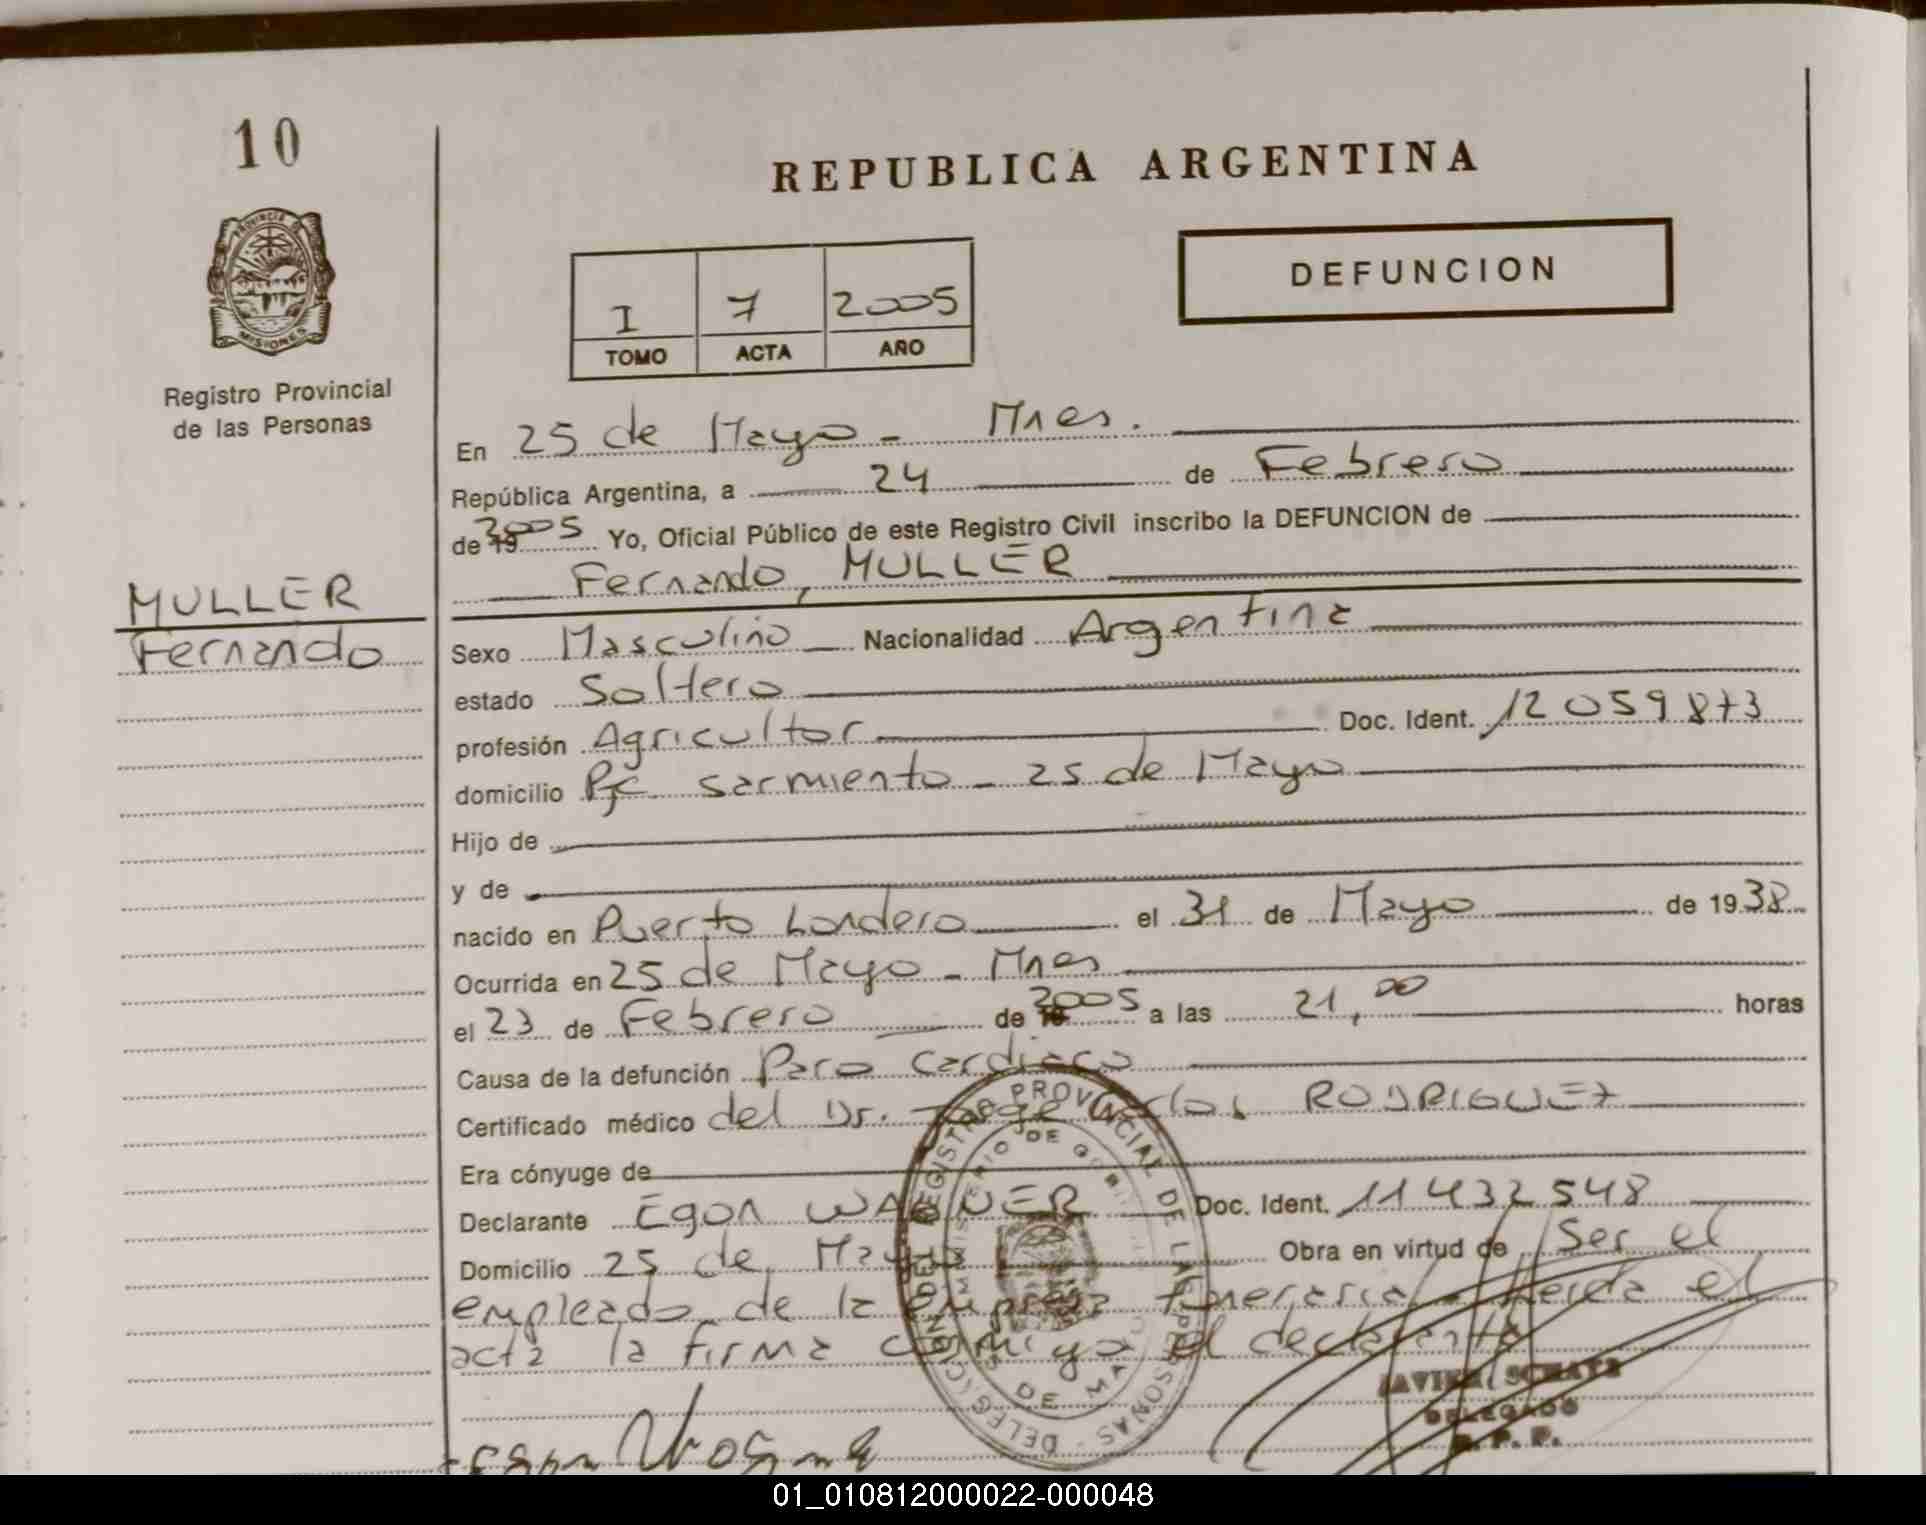 10
REPUBLICA ARGENTINA
PROVINCIA DE
MISIONES
DEFUNCION
I 7 2005
TOMO ACTA AÑO
Registro Provincial
de las Personas
En 25 de Mayo - Mnes.
República Argentina, a 24 de Febrero
de 19 2005 Yo, Oficial Público de este Registro Civil inscribo la DEFUNCION de
Fernando, MULLER
MULLER
Fernando
Sexo Masculino Nacionalidad Argentina
estado Soltero
profesión Agricultor Doc. Ident. 12 059 873
domicilio Pje Sarmiento - 25 de Mayo
Hijo de
y de
nacido en Puerto Londero el 31 de Mayo de 1938
Ocurrida en 25 de Mayo - Mnes
el 23 de Febrero de 2005 a las 21,00 horas
Causa de la defunción Paro Cardiaco
Certificado médico del Dr. Jorge Carlos RODRIGUEZ
Era cónyuge de
Declarante Egon WAGNER Doc. Ident. 11 432 548
Domicilio 25 de Mayo Obra en virtud de Ser el
empleado de la empresa funeraria - Leida el
acta la firma conmigo el declarante
DELEGACION DEL REGISTRO PROVINCIAL DE LAS PERSONAS
MINISTERIO DE GOBIERNO
25 DE MAYO
JAVIER SCHATZ
DELEGADO
R. P. P.
Egon Wagner
01_010812000022-000048